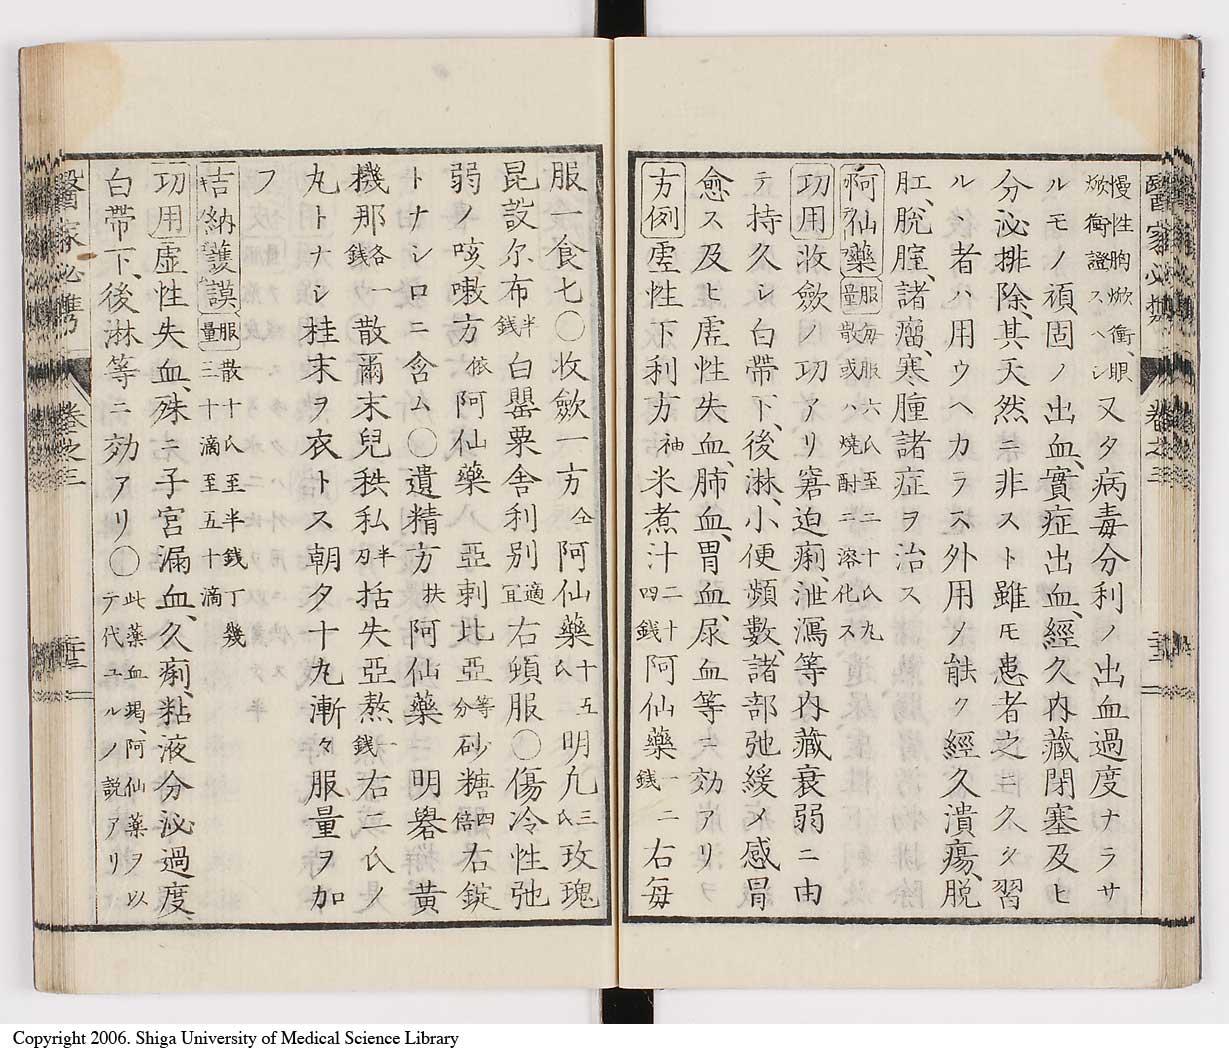 醫家必携 卷之三
慢性胸焮衝、眼
焮衝證スヘシ又タ病毒分利ノ出血過度ナラサ
ルモノ頑固ノ出血、實症出血、經久内藏閉塞及ヒ
分泌排除、其天然ニ非スト雖モ患者之ニ久シク習
ルン者ハ用ウヘカラス外用メ能ク經久潰瘍、脱
肛、脱腟、諸瘤、寒腫諸症ヲ治ス
阿仙藥 服量 毎服六氏至二十氏丸
散或ハ燒酎ニ溶化ス
功用 收歛ノ功アリ窘迫痢、泄瀉等内藏衰弱ニ由
テ持久シ白帶下、後淋、小便頻數、諸部弛緩メ感冒
愈ス及ヒ虚性失血、肺血、胃血、尿血等ニ効アリ
方例 虚性下利方 袖 米煮汁 二十四銭 阿仙藥 一銭 二右毎
服一食七〇收歛一方 仝 阿仙藥 十五氏 明九 三氏 玫瑰
昆設尔布 半銭 白罌粟舎利別 適宜 右頓服〇傷冷性弛
弱ノ咳嗽方 依 阿仙藥 亞刺比亞 等分 砂糖 四倍 右錠
トナシロニ含ム〇遺精方 扶 阿仙藥 明礬 黄
機那 各一銭 散爾末兒秩私 半刃 括失亞熬 一銭 右二氏ノ
丸トナシ桂末ヲ衣トス朝夕十丸漸々服量ヲ加
フ
吉納護謨 服量 散十氏至半銭丁幾
三十滴至五十滴
功用 虚性失血、殊ニ子宮漏血、久痢、粘液分泌過度
白帶下、後淋等ニ効アリ〇 此藥血竭、阿仙藥ヲ以
テ代ユルノ説アリ
醫家必携 卷之三
Copyright 2006. Shiga University of Medical Science Library